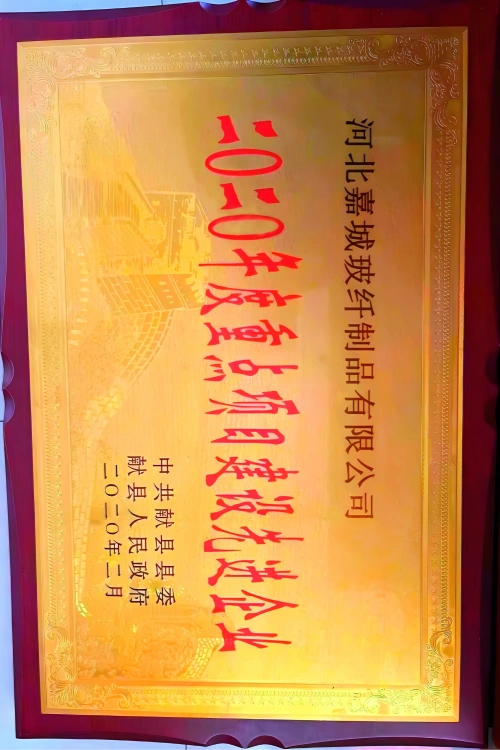 河北嘉城玻纤制品有限公司
二〇二〇年度重点项目建设先进企业
中共献县县委
献县人民政府
二〇二〇年二月